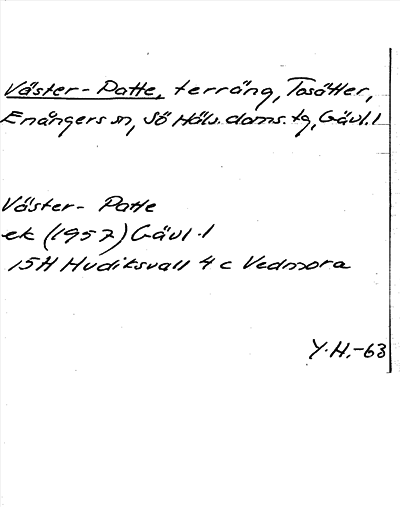 Väster-Patte, terräng, Tosätter,
Enångers sn, Sö Häls. doms. tg, Gävl. l
Väster- Patte
ek (1957) Gävl. l
15H Hudiksvall 4 c Vedmora
Y.H.-63